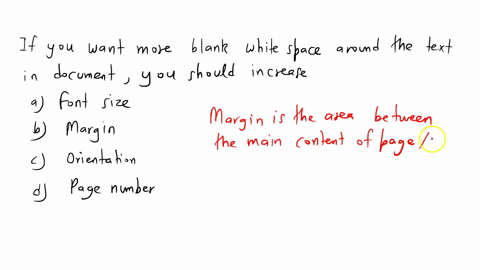 If you want more blank white space around the text
in document, you should increase
a) Font size
b) Margin
c) Orientation
d) Page number
Margin is the area between
the main content of page